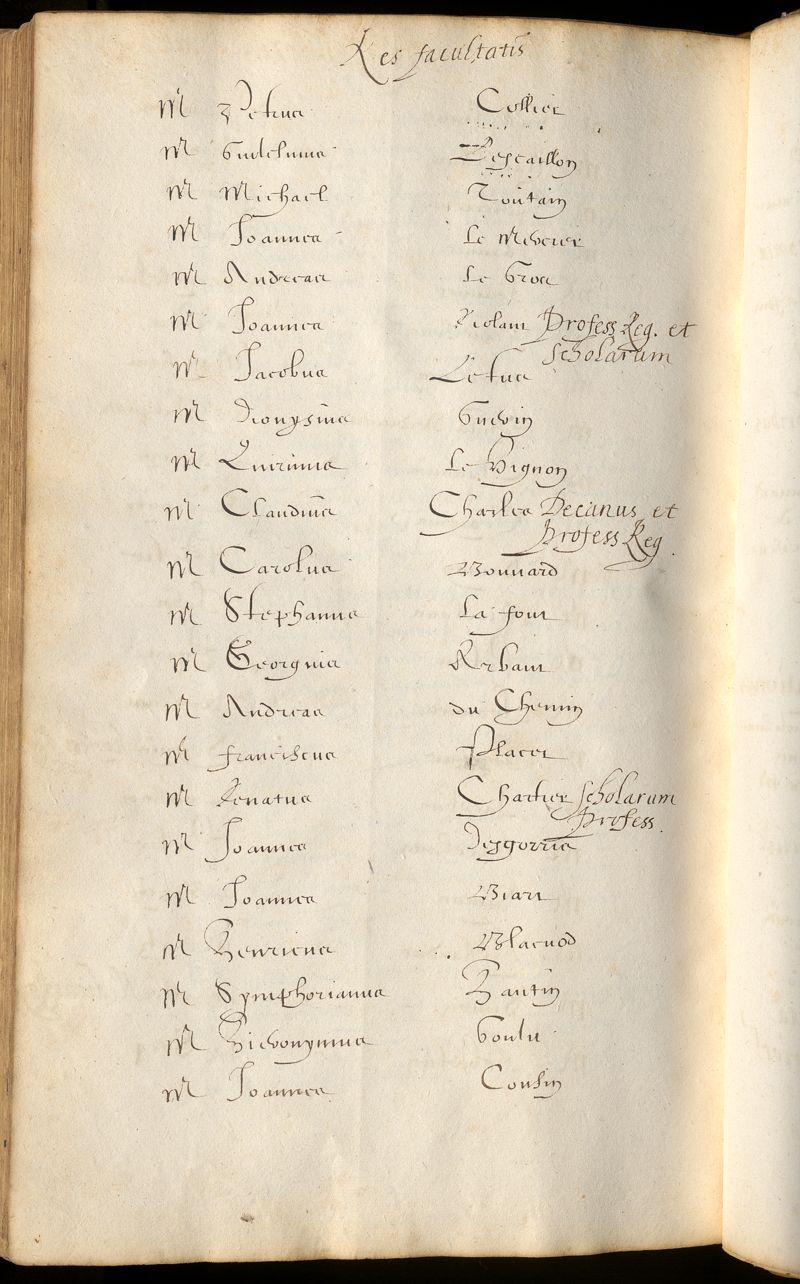 Res facultatis
M Petrus Collier
M Guilelmus Descaillon
M Michael Toutain
M Joannes Le Mercier
M Andreas Le Gros
M Joannes Riolant Profess Reg. et
Scholarum
M Jacobus Letus
M Dionysius Guerin
M Quirinus Le Vignon
M Claudius Charles Decanus et
Profess Reg.
M Carolus Bouvard
M Stephanus La font
M Georgius Arbaut
M Andreas du Chemin
M franciscus Placet
M Renatus Chartier Scholarum
Profess.
M Joannes Desgorris
M Joannes Biart
M Henricus Blacuod
M Symphorianus Hautin
M Hieronymus Goulu
M Joannes Cousin